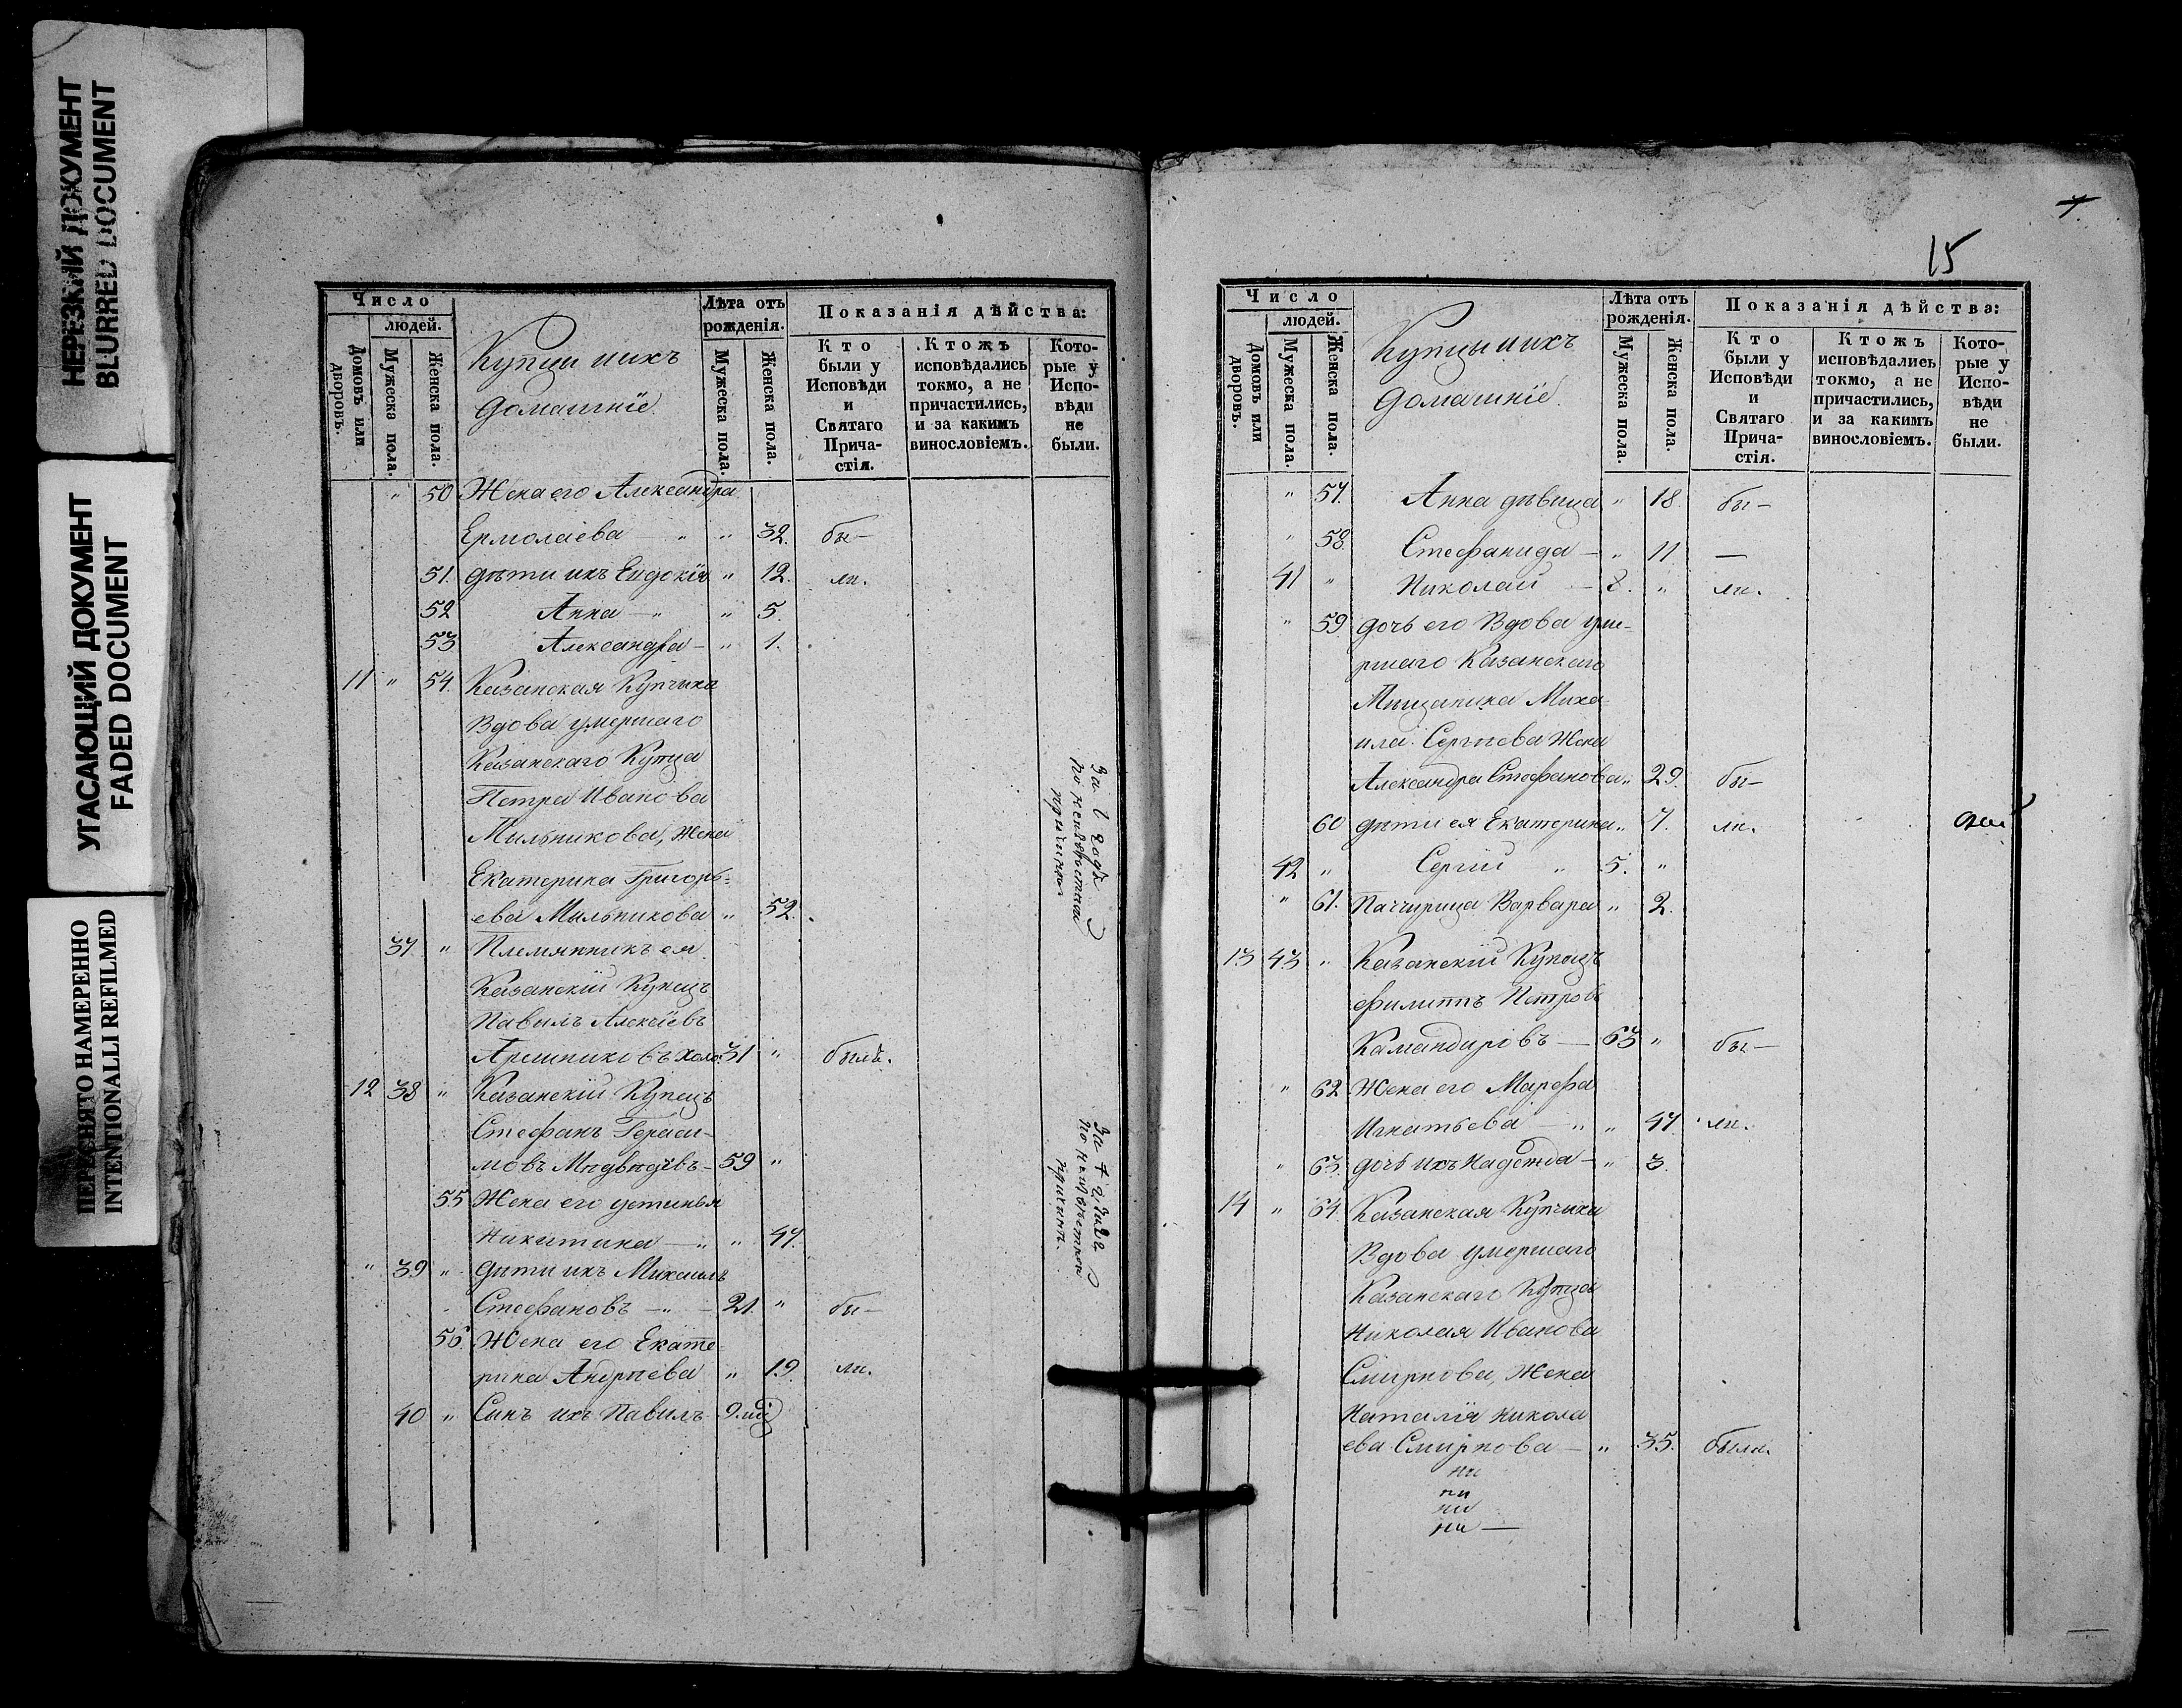 НЕРЕЗКИЙ ДОКУМЕНТ
BLURRED DOCUMENT
УГАСАЮЩИЙ ДОКУМЕНТ
FADED DOCUMENT
ПЕРЕСНЯТО НАМЕРЕННО
INTENTIONALLI REFILMED
Число
людей.
Домовъ или дворовъ.
Мужеска пола.
Женска пола.
Купцы и ихъ
домашнiе.
Лѣта отъ
рожденiя.
Мужеска пола.
Женска пола.
Показанiя дѣйства:
Кто
были у
Исповѣди
и
Святаго
Прича-
стiя.
Ктожъ
исповѣдались
токмо, а не
причастились,
и за какимъ
винословiемъ.
Кото-
рые у
Испо-
вѣди
не
были.
" 50 Жена его Александра
Ермолаева — " " 32. бы—
51. дѣти ихъ Евдокiя " 12. ли.
52 Анна — " " 5.
53 Александра — " 1.
11 " 54. Казанская Купчиха
Вдова умершаго
Казанскаго Купца
Петра Иванова
Мыльникова, Жена
Екатерина Григорь-
ева Мыльникова " 52.
За 1 годъ
по неизвѣстной
причинѣ
37 " Племянникъ ея
Казанскiй Купецъ
Павелъ Алексѣевъ
холо. 31 " былъ.
12 38 " Казанскiй Купецъ
Стефанъ Гераси-
мовъ Медвѣдевъ — 59 "
55 Жена его Устинья
Никитина — " " 47.
по неизвѣстной
причинѣ.
" 39 " дѣти ихъ Михаилъ
Стефановъ — " — 21. " бы—
56 Жена его Екате-
рина Андрѣева " 19. ли.
40 " Сынъ ихъ Павелъ
7.
15
Число
людей.
Домовъ или дворовъ.
Мужеска пола.
Женска пола.
Купцы и ихъ
домашнiе.
Лѣта отъ
рожденiя.
Мужеска пола.
Женска пола.
Показанiя дѣйства:
Кто
были у
Исповѣди
и
Святаго
Прича-
стiя.
Ктожъ
исповѣдались
токмо, а не
причастились,
и за какимъ
винословiемъ.
Кото-
рые у
Испо-
вѣди
не
были.
" 57. Анна дѣвица " 18. бы—
" 58. Стефанида — " 11. —
41 " Николай — 8. " ли.
" 59 дочь его Вдова уме-
ршаго Казанскаго
Мѣщанина Миха-
ила Сергѣева Жена
Александра Стефанова " 29. бы—
60 дѣти ея Екатерина " 7. ли.
42 " Сергiй " 5. "
" 61. Варвара " 2.
13 43 " Казанскiй Купецъ
Филиппъ Петровъ
Камандировъ — 63 " бы—
" 62 Жена его Марфа
Игнатьева — " " 47. ли.
" 63. дочь ихъ Надежда — " 3.
14 " 64. Казанская Купчиха
Вдова умершаго
Казанскаго Купца
Николая Иванова
Смирнова, Жена
Наталiя Никола-
ева Смирнова — " 35. была.